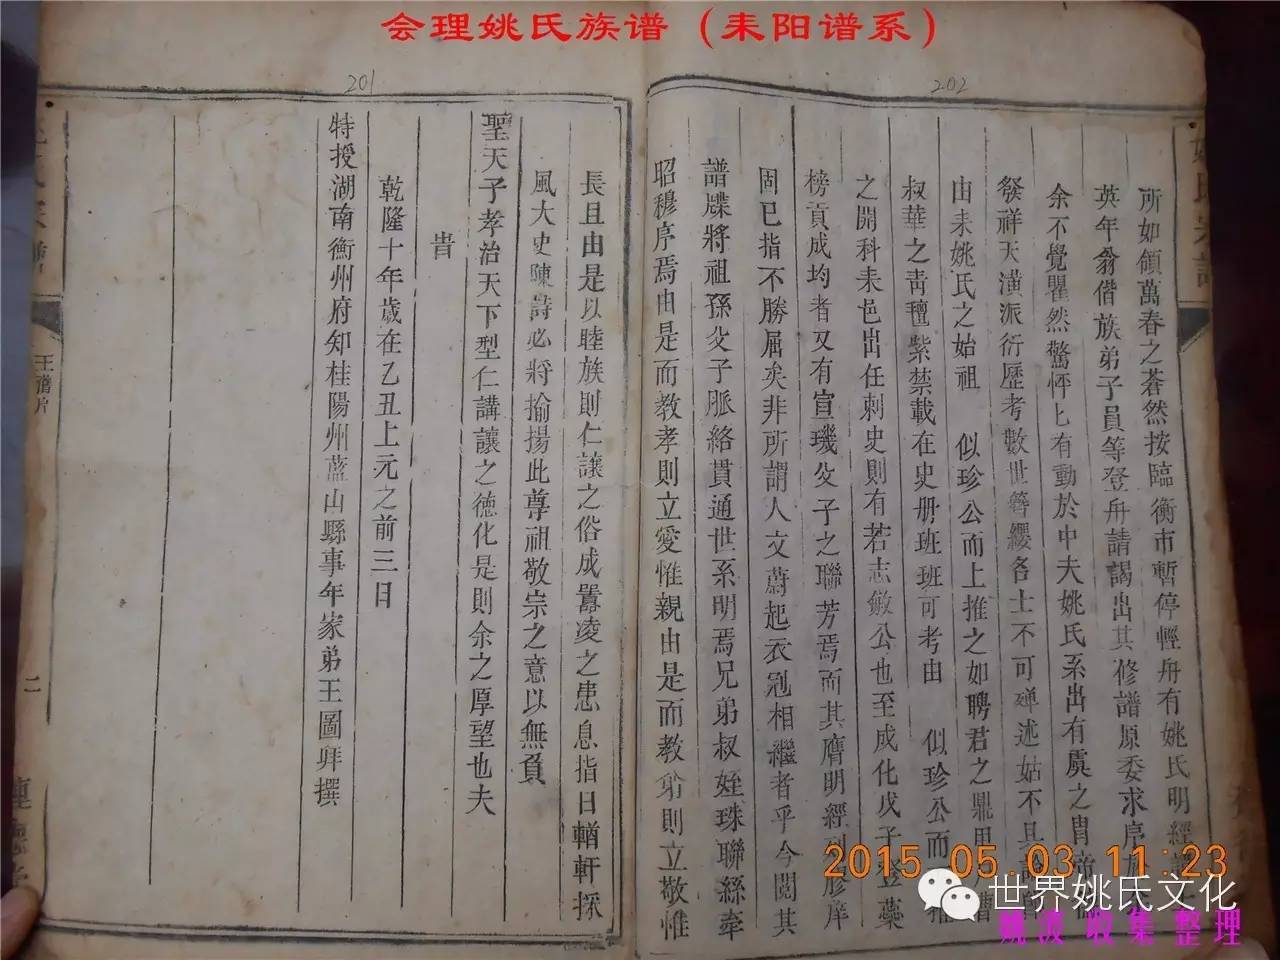 会理姚氏族谱（耒阳谱系）
202
所如領萬春之蒼然按臨衡市暫停輕舟有姚氏明經
英年翁偕族弟子員等登舟請謁出其修譜原委求序於
余不覺瞿然驚怦匕有動於中夫姚氏系出有虞之冑帝
發祥天潢派衍歷考數世簪纓各士不可殫述姑不具
由耒姚氏之始祖 似珍公而上推之如聘君之鼎甲
叔華之靑氊紫禁載在史册班班可考由 似珍公而
之開科耒邑出任刺史則有若志敏公也至成化戊子登藥
榜貢成均者又有宣璣父子之聯芳焉而其膺明經列膠庠
固已指不勝屈矣非所謂人文蔚起衣冠相繼者乎今閱其
譜牒將祖孫父子脈絡貫通世系明焉兄弟叔姪珠聯絲牽
昭穆序焉由是而教孝則立愛惟親由是而教弟則立敬惟
201
長且由是以睦族則仁讓之俗成囂凌之患息指日輶軒採
風大史陳詩必將揄揚此尊祖敬宗之意以無負
聖天子孝治天下型仁講讓之德化是則余之厚望也夫
旹
乾隆十年歲在乙丑上元之前三日
特授湖南衡州府知桂陽州藍山縣事年家弟王圖拜撰
二
2015.05.03 11:23
世界姚氏文化
姚波 收集 整理